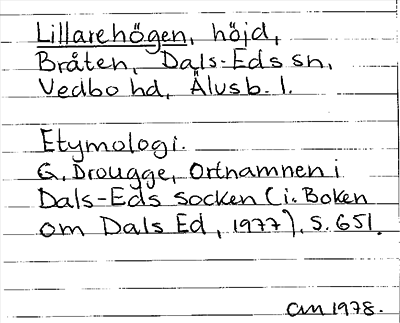 Lillarehögen, höjd,
Bråten, Dals-Eds sn,
Vedbo hd, Älvsb. l.
Etymologi.
G. Drougge, Ortnamnen i
Dals-Eds socken (i: Boken
om Dals Ed, 1977), s. 651.
AM 1978.